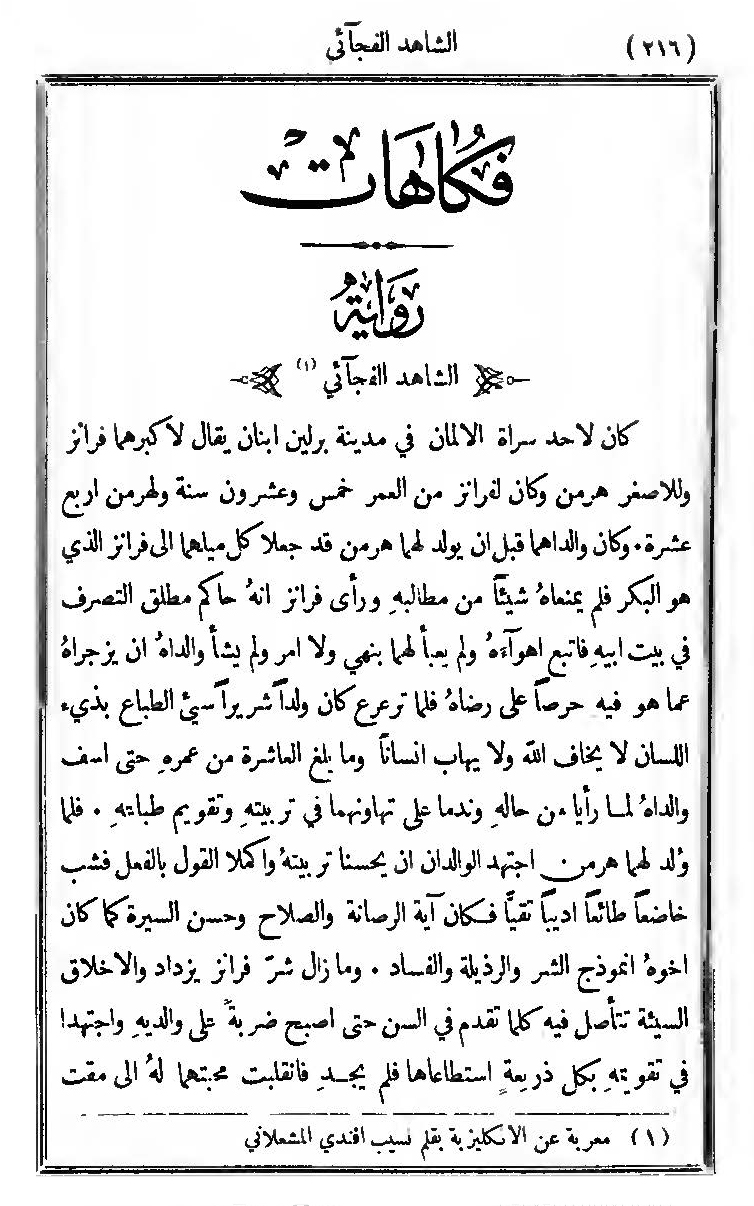 (٢١٦) الشاهد الفجآئي
فُكَاهَات
رِوَايَةُ
الشاهد الفجآئي (١)
كان لاحد سراة الالمان في مدينة برلين ابنان يقال لاكبرهما فرانز
وللاصغر هرمن وكان لفرانز من العمر خمس وعشرون سنة ولهرمن اربع
عشرة. وكان والداهما قبل ان يولد لهما هرمن قد جعلا كل ميلهما الى فرانز الذي
هو البكر فلم يمنعاهُ شيئًا من مطالبهِ ورأى فرانز انهُ حاكم مطلق التصرف
في بيت ابيهِ فاتبع اهوآءَهُ ولم يعبأ لهما بنهي ولا امر ولم يشأ والداهُ ان يزجراهُ
عما هو فيه حرصاً على رضاهُ فلما ترعرع كان ولداً شريراً سيئ الطباع بذيء
اللسان لا يخاف الله ولا يهاب انساناً وما بلغ العاشرة من عمرهِ حتى اسف
والداهُ لما رأيا من حالهِ وندما على تهاونهما في تربيتهِ وتقويم طباعهِ . فلما
وُلد لهما هرمن اجتهد الوالدان ان يحسنا تربيتهُ واكملا القول بالفعل فشب
خاضعاً طائعاً اديباً تقيًّا فكان آية الرصانة والصلاح وحسن السيرة كما كان
اخوهُ انموذج الشر والرذيلة والفساد . وما زال شرّ فرانز يزداد والاخلاق
السيئة تتأصل فيه كلما تقدم في السن حتى اصبح ضربةً على والديهِ واجتهدا
في تقويتهِ بكل ذريعةٍ استطاعاها فلم يجدِ فانقلبت محبتهما لهُ الى مقت
(١) معربة عن الانكليزية بقلم نسيب افندي المشعلاني